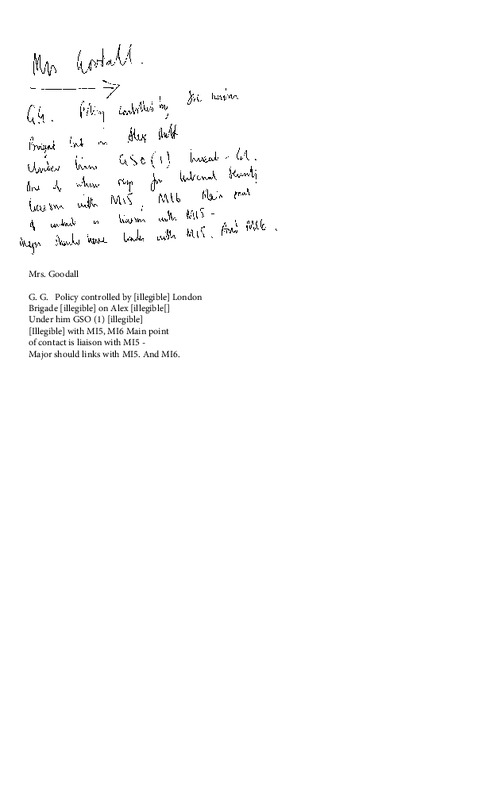 Mrs Goodall.
G.G. Policy controlled by
Under him GSO (1)
for Internal Security
liaison with MI5, MI6 Main point
of contact is liaison with MI5 -
should have links with MI5. And MI6.
Mrs. Goodall
G. G.   Policy controlled by [illegible] London
Brigade [illegible] on Alex [illegible[]
Under him GSO (1) [illegible]
[Illegible] with MI5, MI6 Main point
of contact is liaison with MI5 -
Major should links with MI5. And MI6.